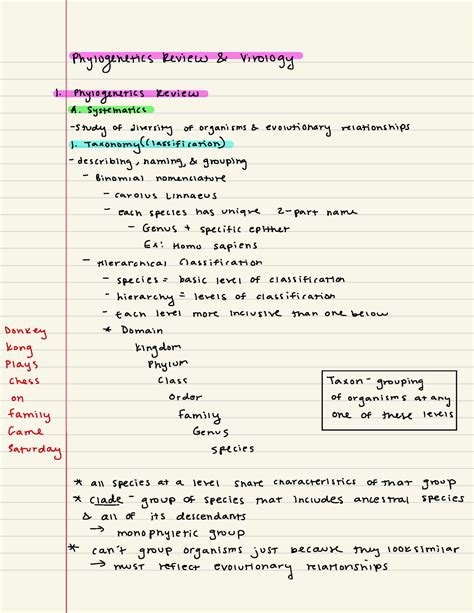 Phylogenetics Review & Virology
1. Phylogenetics Review
A. Systematics
-study of diversity of organisms & evolutionary relationships
1. Taxonomy (Classification)
- describing, naming, & grouping
- Binomial nomenclature
- Carolus Linnaeus
- each species has unique 2-part name
- Genus + specific epither
Ex: Homo sapiens
- Hierarchical Classification
- species = basic level of classification
- hierarchy = levels of classification
- Each level more inclusive than one below
Donkey * Domain
Kong Kingdom
Plays Phylum
Chess Class
on Order
family Family
Game Genus
Saturday Species
Taxon - grouping
of organisms at any
one of these levels
* all species at a level share characteristics of that group
* clade - group of species that includes ancestral species
& all of its descendants
→ monophyletic group
* can't group organisms just because they look similar
→ must reflect evolutionary relationships